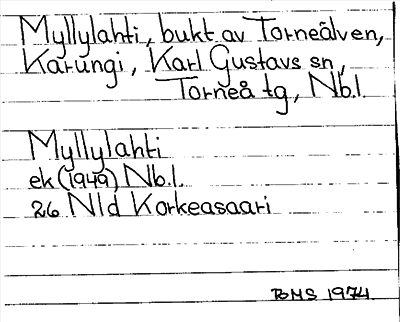 Myllylahti, bukt av Torneälven,
Karungi, Karl Gustavs sn,
Torneå tg, Nb.l.
Myllylahti
ek (1949) Nb.l.
26 Nld Korkeasaari
BMS 1974